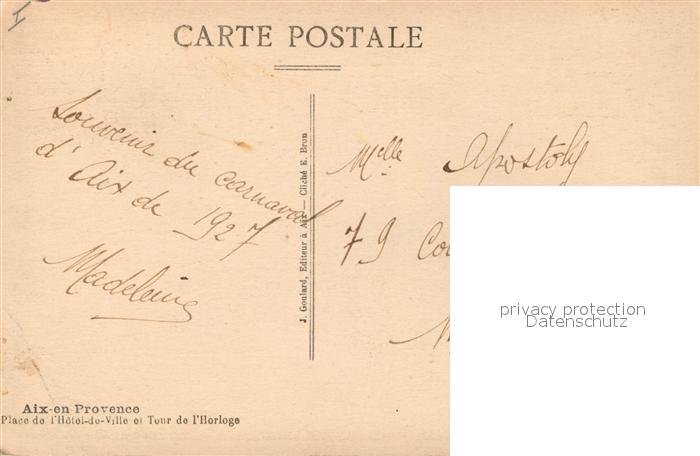 I
CARTE POSTALE
Souvenir du carnaval
d'Aix de 1927
Madeleine
J. Goulard, Editeur à Aix — Cliché E. Bron
Mclle Apostoly
79 Co
M
privacy protection
Datenschutz
Aix-en-Provence
Place de l'Hôtel-de-Ville et Tour de l'Horloge